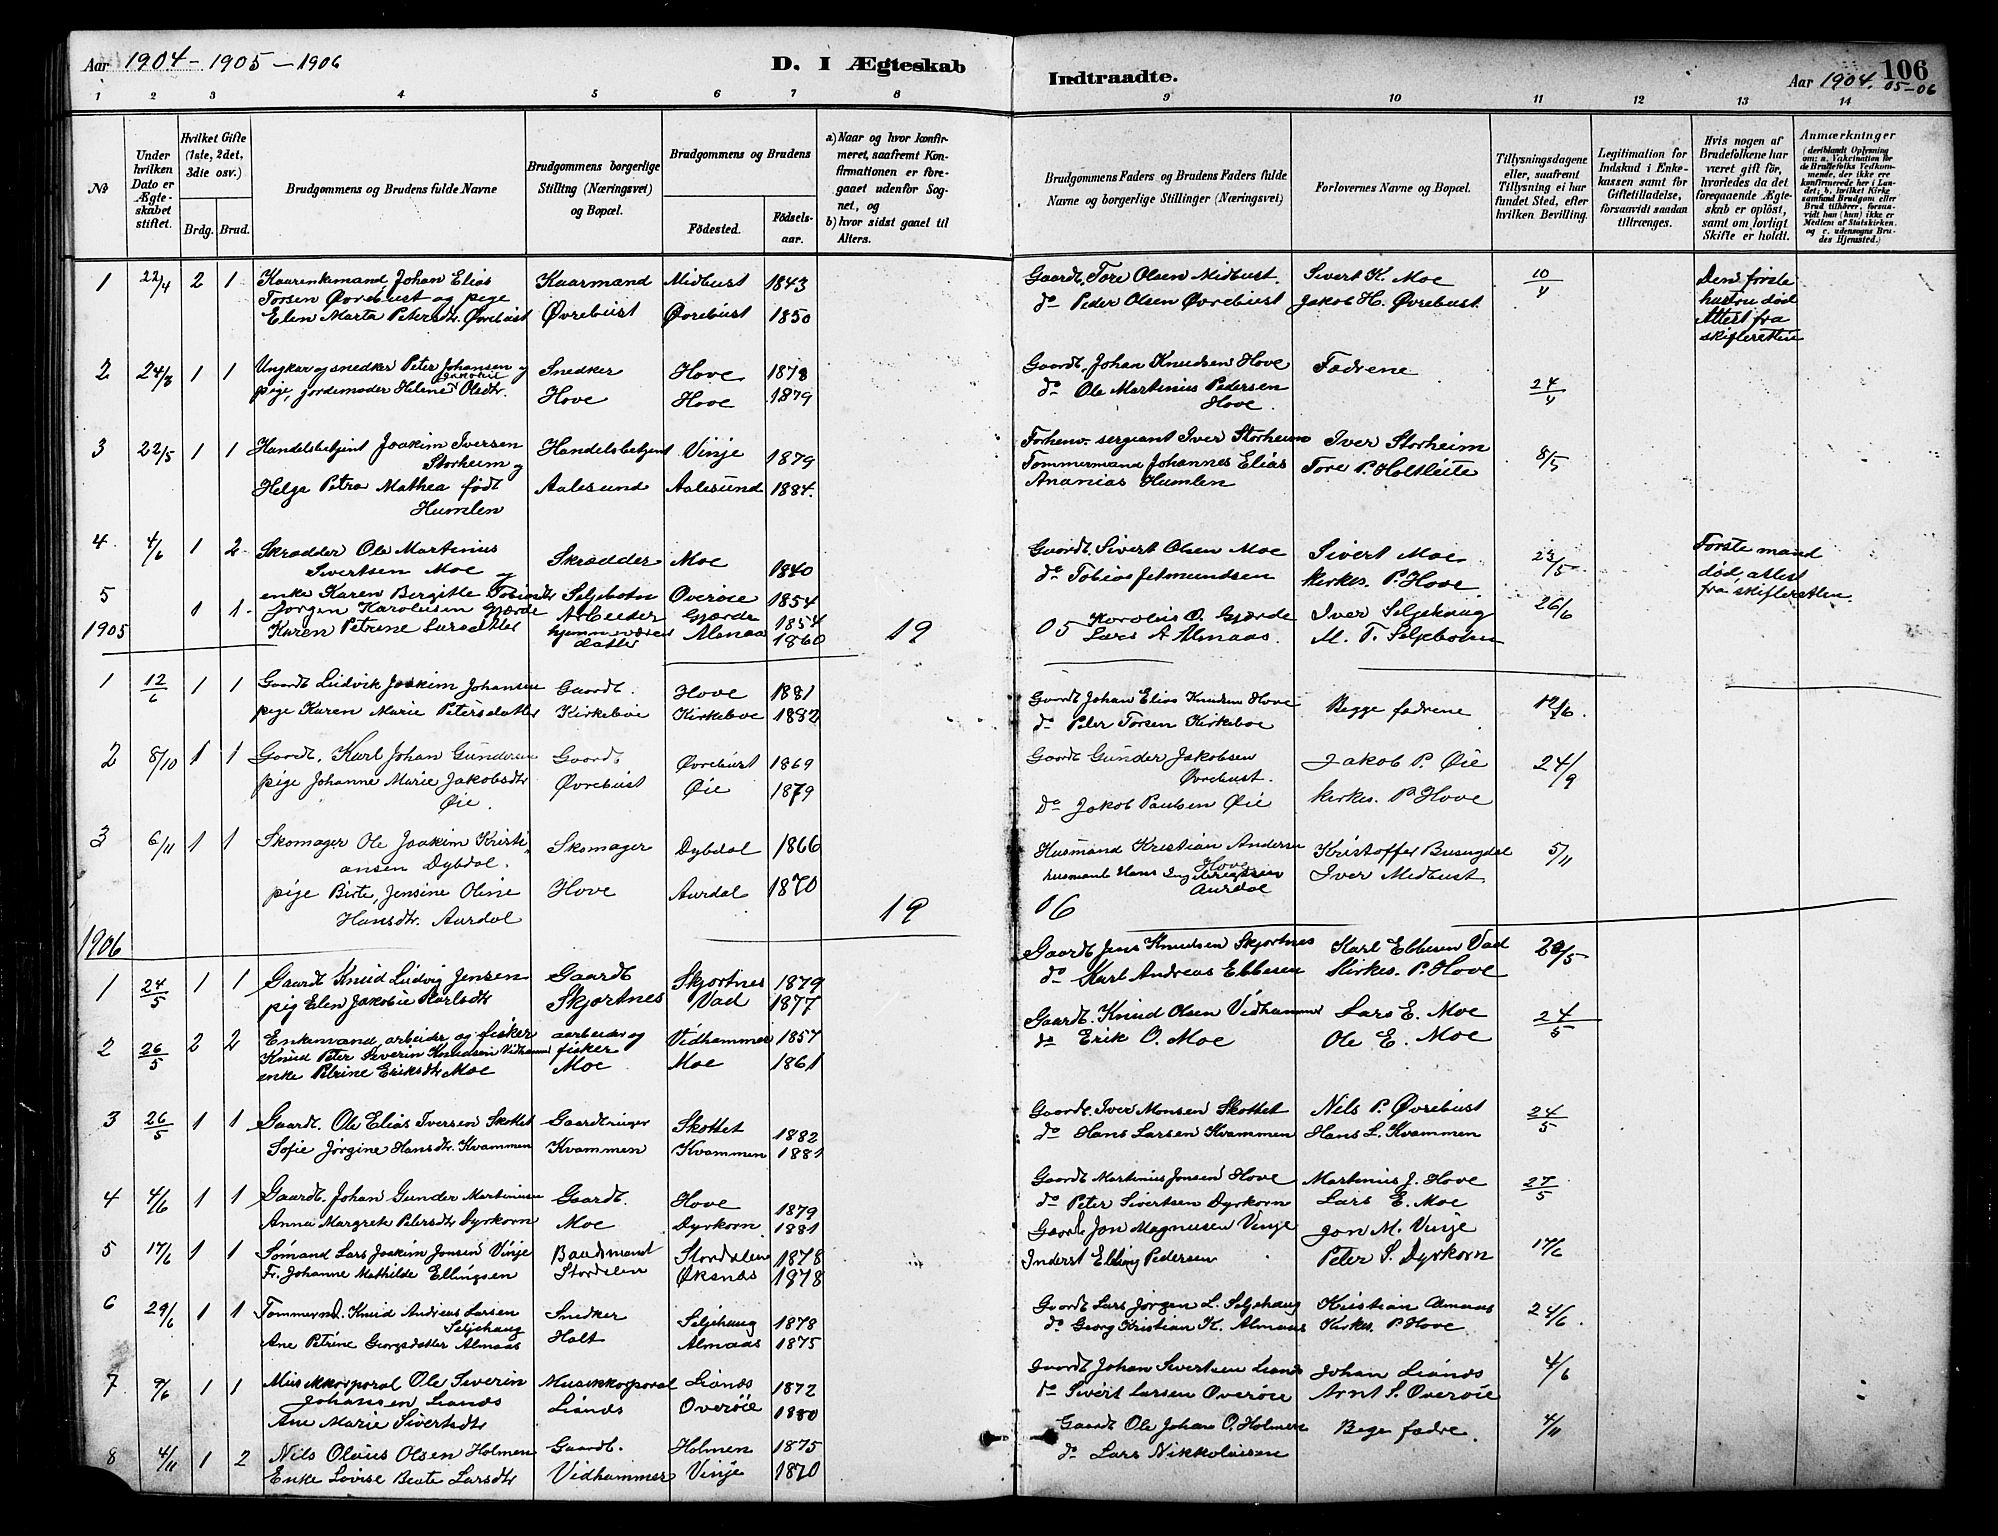 Aar 1904 - 1905 - 1906
D. I Ægteskab
Indtraadte.
Aar 1904. 05-06
106
1 2 3 4 5 6 7 8 9 10 11 12 13 14
№
Under hvilken Dato er Ægteskabet stiftet.
Hvilket Gifte (1ste, 2det, 3die osv.)
Brdg. Brud.
Brudgommens og Brudens fulde Navne
Brudgommens borgerlige Stilling (Næringsvei) og Bopæl.
Brudgommens og Brudens
Fødested.
Fødselsaar.
a) Naar og hvor konfirmeret, saafremt Konfirmationen er foregaaet udenfor Sognet, og
b) hvor sidst gaaet til Alters.
Brudgommens Faders og Brudens Faders fulde Navne og borgerlige Stillinger (Næringsvei)
Forlovernes Navne og Bopæl.
Tillysningsdagene eller, saafremt Tillysning ei har fundet Sted, efter hvilken Bevilling.
Legitimation for Indskud i Enkekassen samt for Giftetilladelse, forsaavidt saadan tiltrænges.
Hvis nogen af Brudefolkene har været gift før, hvorledes da det foregaaende Ægteskab er opløst, samt om lovligt Skifte er holdt.
Anmærkninger (deriblandt Oplysning om: a. Vakcination for de Brudefolks Vedkommende, der ikke ere konfirmerede her i Landet; b. hvilket Kirkesamfund Brudgom eller Brud tilhører, forsaavidt han (hun) ikke er Medlem af Statskirken, og c. udensogns Brudes Hjemsted.)
1 22/4 2 1 Kaarenkemand Johan Elias Kaarmand Midbust 1843 Gaardb. Tore Olsen Midbust. Sivert K. Moe 10/4 Den første
Torsen Øvrebust og pige hustru død
Elen Marta Petersdtr. Øvrebust Øvrebust Øvrebust 1850 do Peder Olsen Øvrebust Jakob H. Øvrebust. Attest fra
skifteretten
2 24/3 1 1 Ungkar og snedker Peter Johansen og Snedker Hove 1878 Gaardb. Johan Knudsen Hove Fædrene 24/4
pige, jordemoder Helene Olsdtr. Hove Hove 1879 do Ole Martinius Pedersen
Hove.
3 22/5 1 1 Handelsbetjent Joakim Iversen Handelsbetjent Vinje 1879 Forhenv. sergeant Iver Storheim Iver Storheim 8/5
Storheim og Tømmermand Johannes Elias Tore P. Holtleite
Helga Petra Mathea født Aalesund Aalesund 1884. Ananias Humlen
Humlen
4 4/6 1 2 Skrædder Ole Martinius Skrædder Moe 1840 Gaardb. Sivert Olsen Moe Sivert Moe 23/5 Første mand
Sivertsen Moe og død, attest
enke Karen Bergitte Tobiasdtr Seljebotn Overøie 1854 do Tobias Jetmundsen Kirkes. P. Hove. fra skifteretten
5 1 1 Jørgen Karolusen Gjærde Arbeider Gjærde 1854 Karolus O. Gjærde Iver Seljehaug 26/6
Karen Petrine Larsdatter hjemmeværende datter Almaas 1860 Lars A Almaas. M. T. Seljebotn
1905 19 05
1 12/6 1 1 Gaardb Ludvik Joakim Johansen Gaardb. Hove 1881 Gaardb Johan Elias Knudsen Hove Begge fædrene 12/6.
pige Karen Marie Petersdatter Kirkebøe Kirkebøe 1882 do Peter Torsen Kirkebøe
2 8/10 1 1 Gaardb. Karl Johan Gundersen Gaardb Øvrebust 1869 Gaardb Gunder Jakobsen Jakob P. Øie 24/9
pige Johanne Marie Jakobsdtr Øvrebust Øie 1879 Øvrebust.
Øie. do Jakob Paulsen Øie Kirkes. P. Hove
3 6/11 1 1 Skomager Ole Joakim Kristi- Skomager Dybdal 1866 Husmand Kristian Andersen Kristoffer Busugdal 5/11
ansen Dybdal. Hove Iver Midbust
pige Birte Jensine Oline Hove Aurdal 1870 husmand Hans Ingebrigtsen Aurdal
Hansdtr. Aurdal
1906 19 06
1 24/5 1 1 Gaardb Knud Ludvig Jensen Gaardb Skjortnes 1879 Gaardb Jens Knudsen Skjortnes Karl Ebbesen Vad 28/5
pig Elen Jakobie Karlsdtr Skjortnes Vad 1877 do Karl Andreas Ebbesen Kirkes. P. Hove
2 26/5 2 2 Enkemand, arbeider og fisker aarbeider og Vidhammer 1857 Gaardb. Knud Olsen Vidhammer Lars E. Moe 24/5
Knud Peter Severin Knudsen Vidhammer fisker
enke Petrine Eriksdtr Moe Moe Moe 1861 do Erik O. Moe Ole E. Moe
3 26/5 1 1 Gaardb. Ole Elias Iversen Skottet Gaardbruger Skottet 1882 Gaardb. Iver Monsen Skottet Nils P. Øvrebust 24/5
Sofie Jørgine Hansdtr. Kvammen Kvammen Kvammen 1881 do Hans Larsen Kvammen Hans L. Kvammen
4 4/6 1 1 Gaardb. Johan Gunder Martinusen Gaardb. Hove 1879 Gaardb Martinius Jonsen Hove Martinius J. Hove 27/5
Anna Margrete Petersdtr Dyrkorn Moe Dyrkorn 1881 do Peter Sivertsen Dyrkorn Lars E. Moe
5 17/6 1 1 Sømand Lars Joakim Jonsen Vinje Baadsmand Stordalen 1878 Gaardb Jon Magnusen Vinje Jon M. Vinje 17/6
Fr. Johanne Mathilde Ellingsen Stordalen Øksnæs 1878 Inderst Elling Pedersen Peter S. Dyrkorn
6 29/6 1 1 Tømmermd. Knud Andreas Larsen Snedker Seljehaug 1878 Gaardb Lars Jørgen L. Seljehaug Kristian Almaas 24/6
Seljehaug
Ane Petrine Georgsdatter Almaas Holt Almaas 1875 do Georg Kristian K. Almaas Kirkes. P. Hove
7 9/6 1 1 Musikkorporal Ole Severin Musikkorporal Lianes 1872 Gaardb Johan Sivertsen Lianes Johan Lianes 4/6
Johansen Lianes Lianes Overøie 1880 do Sivert Larsen Overøie Arnt S. Overøie
Ane Marie Sivertsdtr
8 4/11 1 2 Nils Olaus Olsen Holmen Gaardb. Holmen 1875 Gaardb Ole Johan O. Holmen Bege fædre. 4/11
Enke Lovise Beate Larsdtr Vidhammer Vinje 1870 do Lars Nikkolaisen